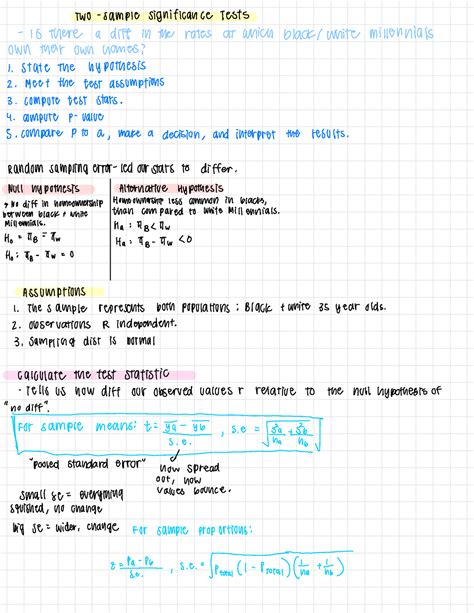 Two-Sample Significance Tests
- Is there a diff in the rates at which black/white millennials
own their own homes?
1. State the hypothesis
2. Meet the test assumptions
3. compute test stats.
4. compute p-value
5. compare P to a, make a decision, and interpret the results.
Random sampling error-led our stats to differ.
Null hypothesis
→ No diff in homeownership
between black + white
Millennials.
H₀ = π_B = π_W
H₀: π_B - π_W = 0
Alternative Hypothesis
Homeownership less common in blacks,
than compared to white Millennials.
Ha: π_B < π_W
Ha: π_B - π_W < 0
Assumptions
1. The sample represents both populations: Black + white 35 year olds.
2. Observations R independent.
3. Sampling dist is normal
Calculate the test statistic
- Tells us how diff our observed values r relative to the null hypothesis of
"no diff".
For sample means: t = (ȳa - ȳb) / s.e. , s.e = √(s²a/na + s²b/nb)
"pooled standard error"
how spread
out, how
values bounce.
small se = everything
squished, no change
big se = wider, change
For sample proportions:
z = (Pa - Pb) / s.e. , s.e. = √(Ptotal (1 - Ptotal) (1/na + 1/nb))